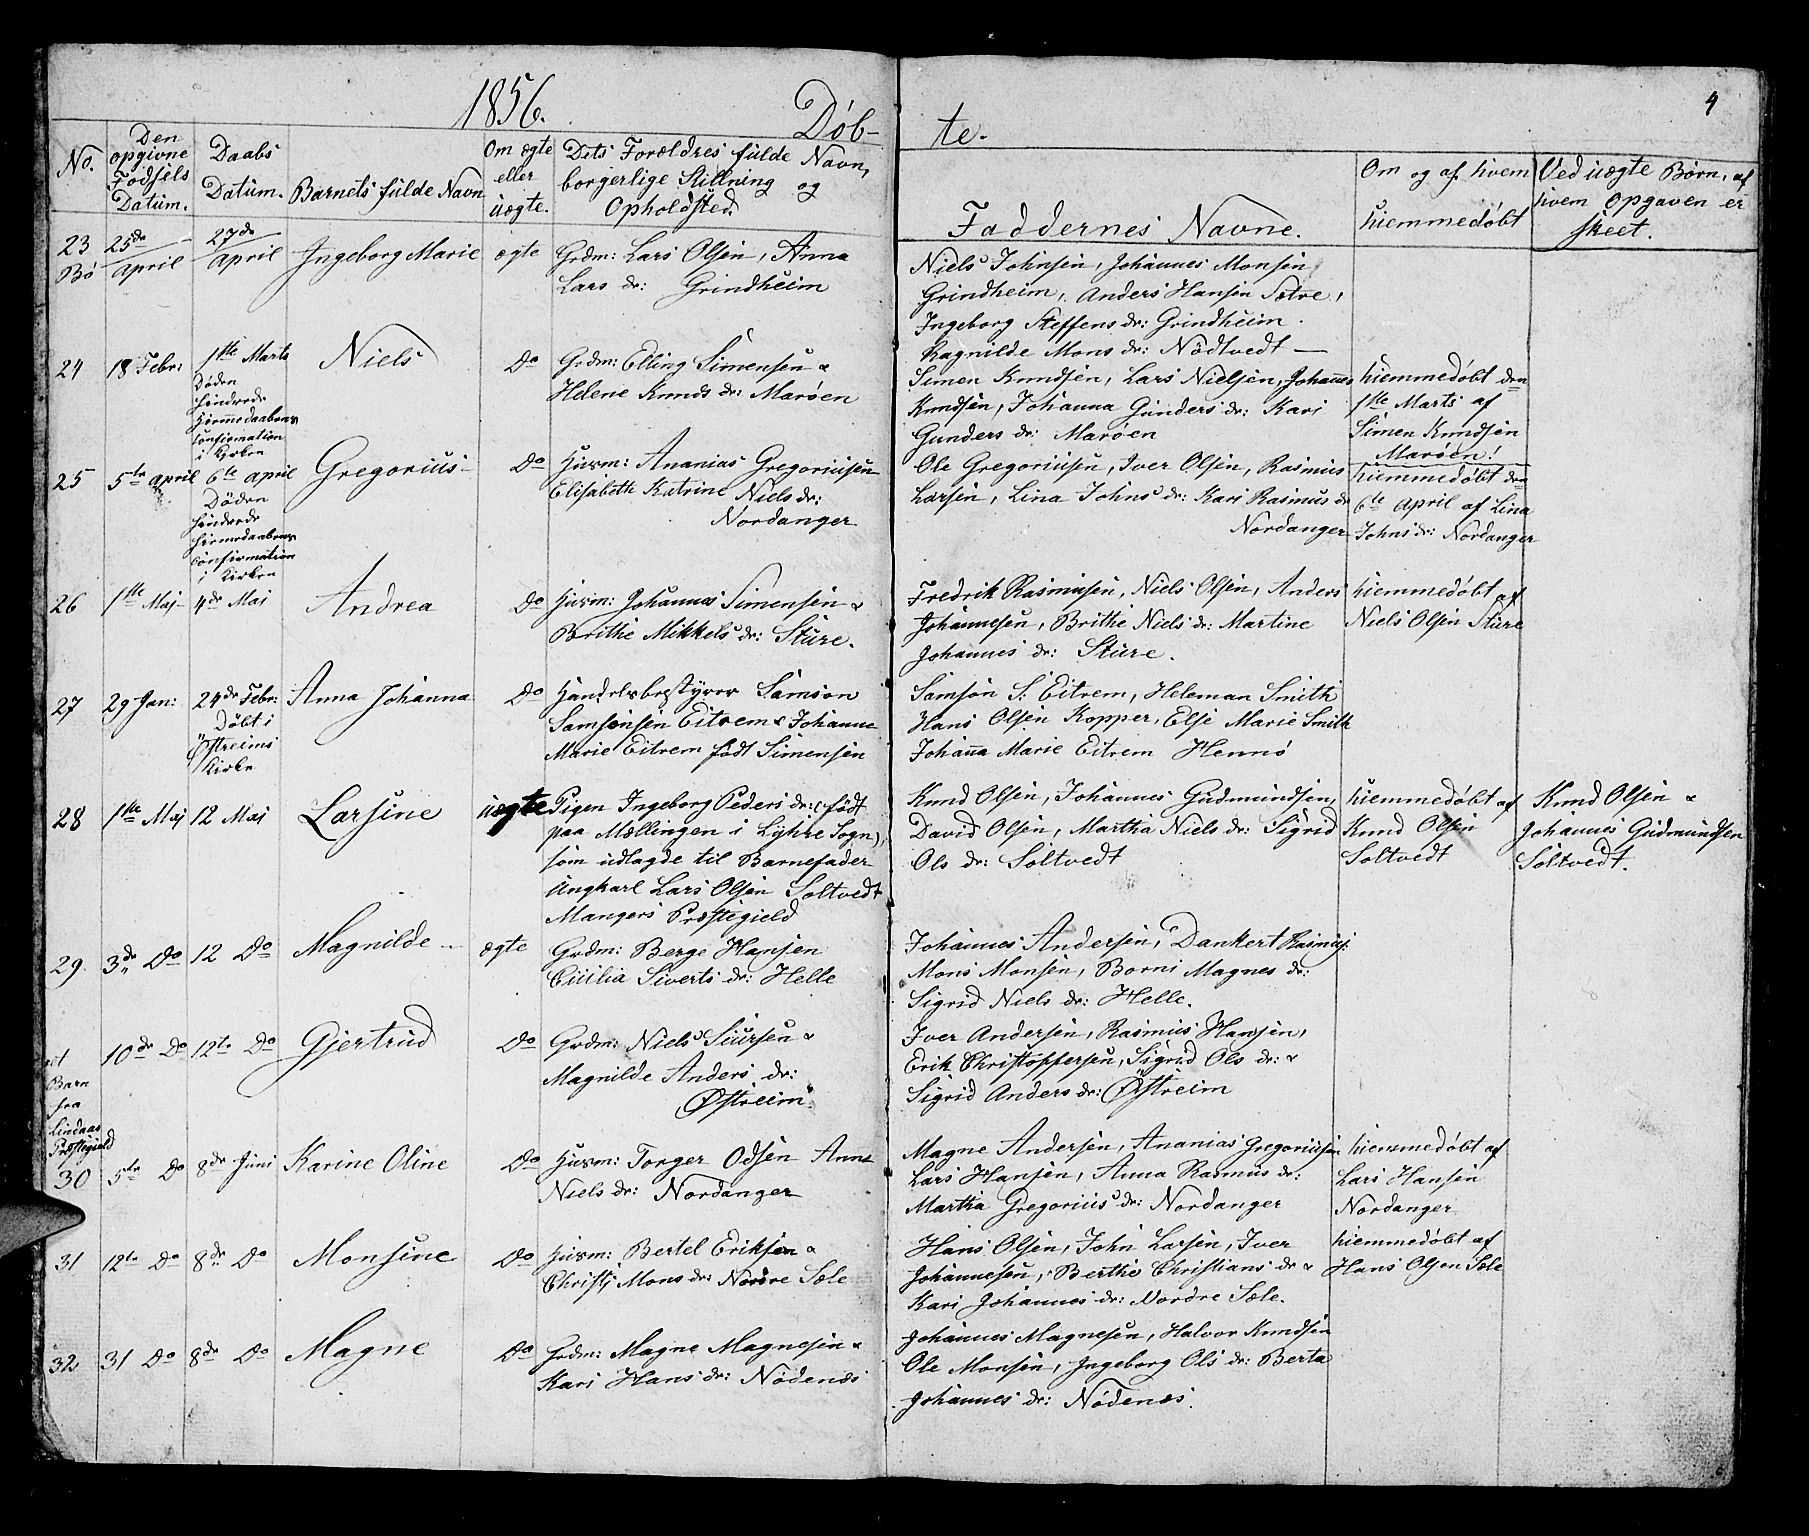 1856.
Døb-
te.
4
No.
Den
opgivne
Fødsels
Datum.
Daabs
Datum.
Barnets fulde Navn
Om ægte
eller
uægte.
Dets Forældres fulde Navn,
borgerlige Stillning og
Opholdsted.
Faddernes Navne.
Om og af hvem
hiemmedøbt
Ved uægte Børn, af
hvem Opgaven er
skeet.
23
Bø
25de
April
27de
April
Ingeborg Marie
ægte
Grdm: Lars Olsen, Anna
Lars dr: Grindheim
Niels Johnsen, Johannes Monsen
Grindheim, Anders Hansen Sætre,
Ingeborg Steffens dr: Grindheim.
Ragnilde Mons dr: Nödtvedt —
24
18 Febr:
1ste Marts
Døden
hindrede
Hjemmedaabens
Confirmation
i Kirken
Niels
Do
Grdm: Elling Simensen &
Helene Knuds dr: Marøen
Simen Knudsen, Lars Nielsen, Johannes
Knudsen, Johanna Gunders dr: Kari
Gunders dr: Marøen
hiemmedøbt den
1ste Marts af
Simen Knudsen
Marøen!
25
5te April
6te April
Döden
hindrede
Hiemmedaabens
Confirmation
i Kirken
Gregorius
Do
Huusm: Ananias Gregoriusen
Elisabeth Katrine Niels dr:
Nordanger
Ole Gregoriusen, Iver Olsen, Rasmus
Larsen, Lina Johns dr: Kari Rasmus dr
Nordanger
hiemmedøbt den
6te April af Lina
Johns dr: Nordanger
26
1ste Maj
4de Maj
Andrea
Do
Huusm: Johannes Simensen &
Brithe Mikkels dr: Sture.
Fredrik Rasmusen, Niels Olsen, Anders
Johannesen, Brithe Niels dr: Martine
Johannes dr: Sture.
hiemmedøbt af
Niels Olsen Sture
27
29 Jan:
24de Febr:
Døbt i
Östreims
Kirke
Anna Johanna
Do
Handelsbestyrer Samson
Samsonsen Eitrem & Johanne
Marie Eitrem födt Simensen
Samson S. Eitrem, Heleman Smith
Hans Olsen Kopper, Else Marie Smith
Johanna Marie Eitrem Hennø
28
1ste Maj
12 Maj
Larsine
uægte
Pigen Ingeborg Peders dr: (født
paa Mællingen i Lyhre Sogn),
som udlagde til Barnefader
Ungkarl Lars Olsen Soltvedt
Mangers Præstegield
Knud Olsen, Johannes Gudmundsen,
David Olsen, Martha Niels dr: Sigrid
Ols dr: Soltvedt
hiemmedøbt af
Knud Olsen
Soltvedt
Knud Olsen &
Johannes Gudmundsen
Soltvedt.
29.
3de Do
12 Do
Magnilde
ægte
Grdm: Berge Hansen
Cicilia Siverts dr: Helle
Johannes Andersen, Dankert Rasmus:
Mons Monsen, Borni Magnes dr:
Sigrid Niels dr: Helle.
et
Barn
fra
Lindaas
Præstegield
10de Do
12te Do
Gjertrud
Do
Grdm: Niels Siursen &
Magnilde Anders dr:
Østreim
Iver Andersen, Rasmus Hansen,
Erik Christoffersen, Sigrid Ols dr: &
Sigrid Anders dr: Østreim
30
5te Do
8de Juni
Karine Oline
Do
Huusm: Torger Odsen Anna
Niels dr: Nordanger
Magne Andersen, Ananias Gregoriusen
Lars Hansen, Anna Rasmus dr:
Martha Gregorius dr: Nordanger
hiemmedøbt af
Lars Hansen
Nordanger
31
12te Do
8de Do
Monsine
Do
Huusm: Bertel Eriksen &
Christi Mons dr: Nordre Sæle
Hans Olsen, John Larsen, Iver
Johannesen, Berthe Christians dr &
Kari Johannes dr: Nordre Sæle.
hiemmedøbt af
Hans Olsen Sæle
32
31 Do
8de Do
Magne
Do
Grdm: Magne Magnesen &
Kari Hans dr: Nødenæs
Johannes Magnesen, Halvor Knudsen
Ole Monsen, Ingeborg Ols dr: Berta
Johannes dr: Nødenæs.